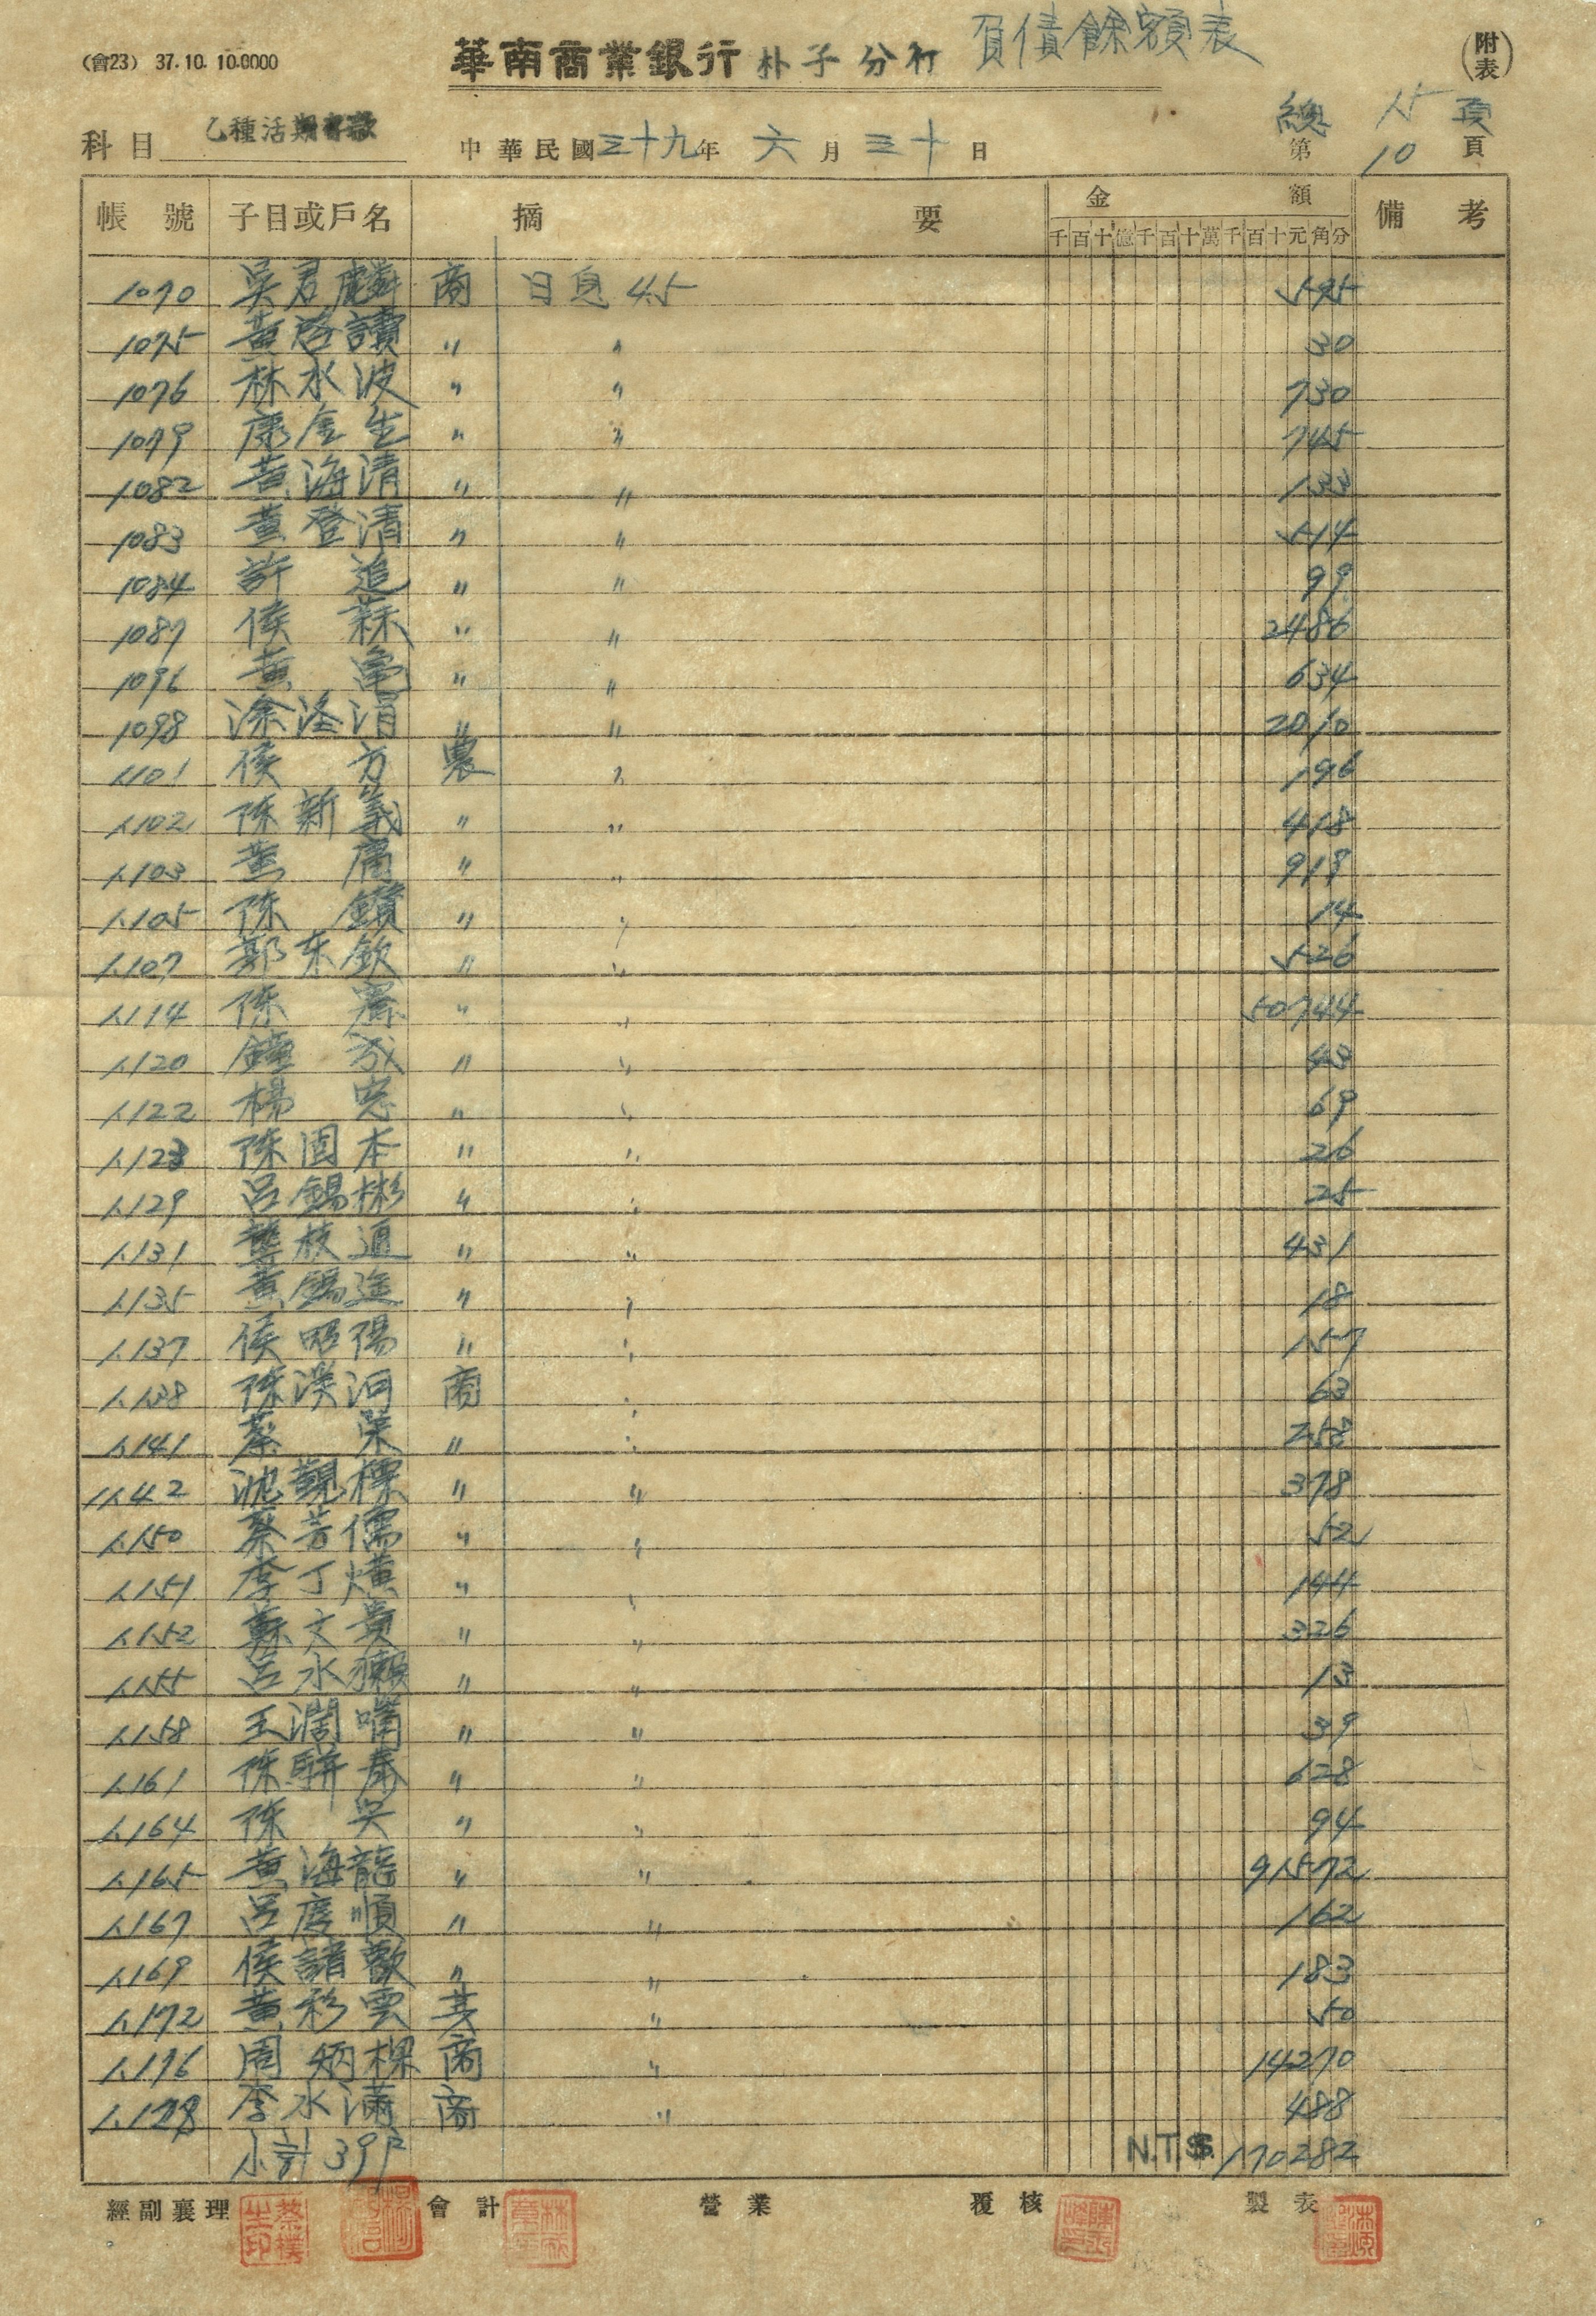 (會23) 37.10.10.0000
華南商業銀行 朴子分行 負債餘額表 (附表)
科目 乙種活期存款 中華民國三十九年 六月三十日
總 15 頁
第 10 頁
帳號 子目或戶名 摘要 金額 備考
千百十億千百十萬千百十元角分
1070 吳君麟 商 日息 4.5 595
1075 黃啓讀 〃 〃 30
1076 林水波 〃 〃 730
1079 康金生 〃 〃 745
1082 黃海清 〃 〃 133
1083 黃登清 〃 〃 514
1084 許追 〃 〃 99
1087 侯蔴 〃 〃 2486
1096 黃龟 〃 〃 634
1098 涂 涓 〃 〃 2010
1101 侯方 農 〃 196
1102 陳新義 〃 〃 418
1103 黃 〃 〃 918
1105 陳鑽 〃 〃 14
1107 郭東欽 〃 〃 526
1114 陳 〃 〃 50744
1120 鍾 〃 〃 43
1122 楊 〃 〃 69
1123 陳固本 〃 〃 26
1129 呂錫彬 〃 〃 25
1131 龔枝通 〃 〃 431
1135 黃錫進 〃 〃 18
1137 侯昭陽 〃 〃 157
1138 陳漢河 商 〃 63
1141 蔡榮 〃 〃 258
1142 沈觀標 〃 〃 378
1150 蔡芳儒 〃 〃 52
1151 李丁熿 〃 〃 144
1152 蘇文貴 〃 〃 326
1155 呂水獺 〃 〃 13
1158 王濶嘴 〃 〃 39
1161 陳駢秦 〃 〃 628
1164 陳吳 〃 〃 94
1165 黃海龍 〃 〃 91572
1167 呂度順 〃 〃 162
1169 侯諸歡 〃 〃 183
1172 黃彩雲 其 〃 50
1176 周炳樑 商 〃 14270
1178 李水滿 商 〃 488
小計 39戶 N.T.$. 170282
經副襄理 會計 營業 覆核 製表